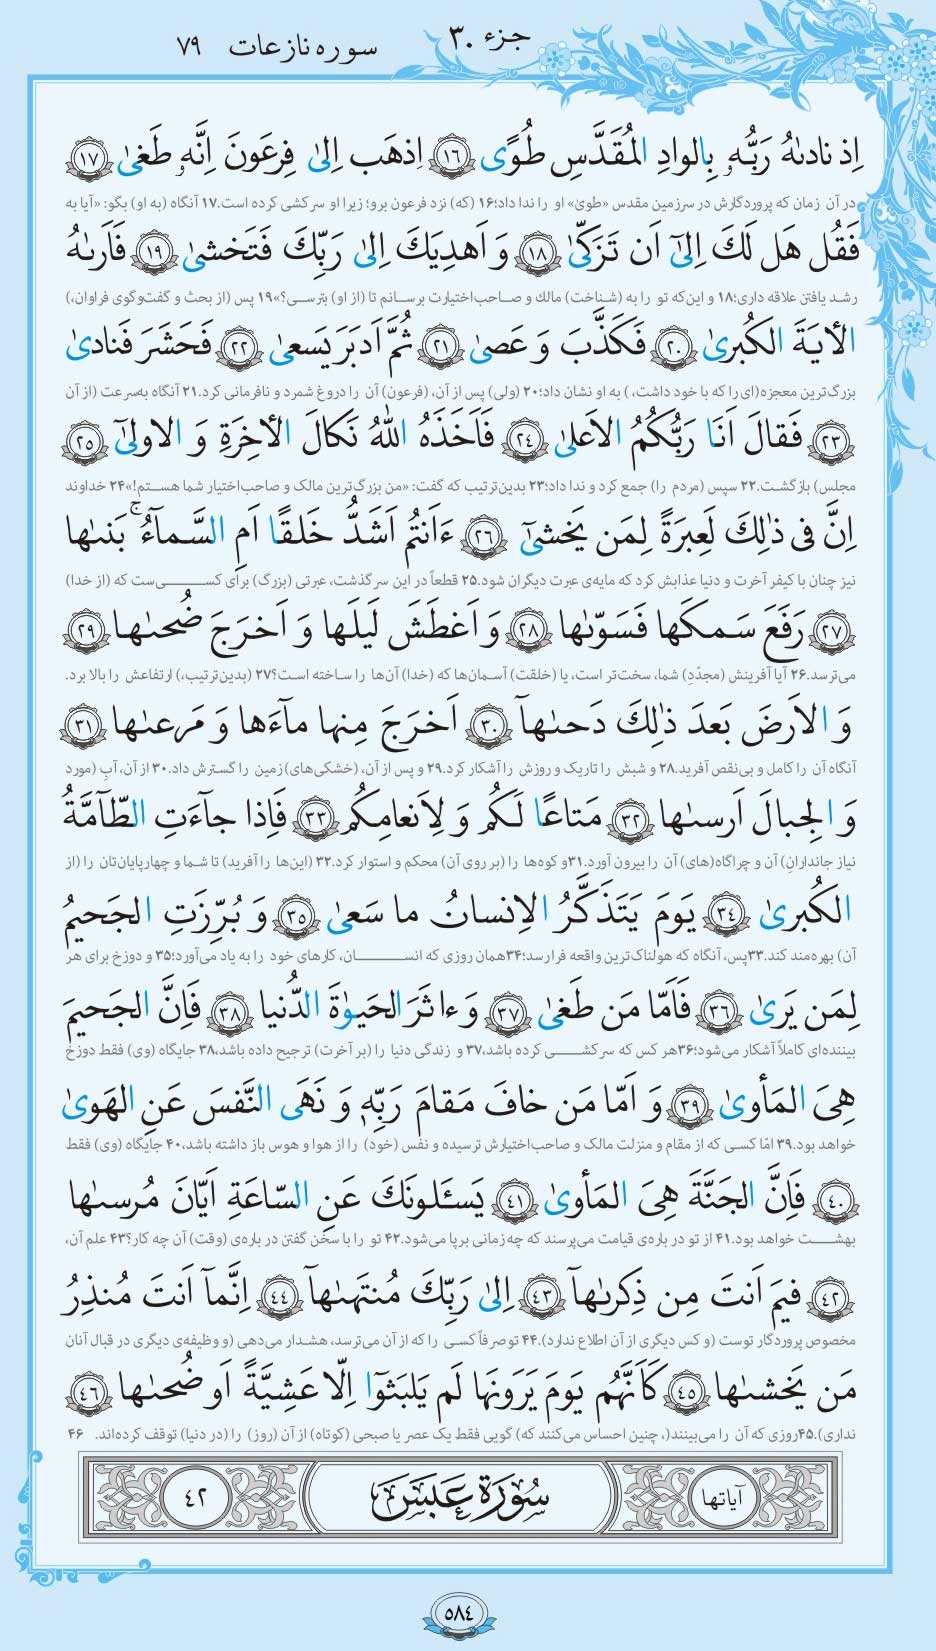 جزء ۳۰
سوره نازعات ۷۹
اِذ نادىٰهُ رَبُّهُۥ بِالوادِ المُقَدَّسِ طُوًى ١٦ اِذهَب اِلىٰ فِرعَونَ اِنَّهُۥ طَغىٰ ١٧
در آن زمان که پروردگارش در سرزمین مقدس «طوی» او را ندا داد؛۱۶ (که) نزد فرعون برو؛ زیرا او سرکشی کرده است.۱۷ آنگاه (به او) بگو: «آیا به
فَقُل هَل لَكَ اِلىٰٓ اَن تَزَكّىٰ ١٨ وَ اَهدِيَكَ اِلىٰ رَبِّكَ فَتَخشىٰ ١٩ فَاَرىٰهُ
رشد یافتن علاقه داری؛۱۸ و این‌که تو را به (شناخت) مالك و صاحب‌اختیارت برسانم تا (از او) بترسی؟»۱۹ پس (از بحث و گفت‌وگوی فراوان،)
الأٰيَةَ الكُبرىٰ ٢٠ فَكَذَّبَ وَ عَصىٰ ٢١ ثُمَّ اَدبَرَ يَسعىٰ ٢٢ فَحَشَرَ فَنادىٰ
بزرگ‌ترین معجزه(ای را که با خود داشت، ) به او نشان داد؛۲۰ (ولی) پس از آن، (فرعون) آن را دروغ شمرد و نافرمانی کرد.۲۱ آنگاه به‌سرعت (از آن
٢٣ فَقالَ اَنَا رَبُّكُمُ الاَعلىٰ ٢٤ فَاَخَذَهُ اللّٰهُ نَكالَ الأٰخِرَةِ وَ الاولىٰٓ ٢٥
مجلس) بازگشت.۲۲ سپس (مردم را) جمع کرد و ندا داد؛۲۳ بدین‌ترتیب که گفت: «من بزرگ‌ترین مالک و صاحب‌اختیار شما هستم!»۲۴ خداوند
اِنَّ فى ذٰلِكَ لَعِبرَةً لِمَن يَخشىٰٓ ٢٦ ءَاَنتُم اَشَدُّ خَلقًا اَمِ السَّمآءُ ۚ بَنىٰها
نیز چنان با کیفر آخرت و دنیا عذابش کرد که مایه‌ی عبرت دیگران شود.۲۵ قطعاً در این سرگذشت، عبرتی (بزرگ) برای کسی‌ست که (از خدا)
٢٧ رَفَعَ سَمكَها فَسَوّىٰها ٢٨ وَ اَغطَشَ لَيلَها وَ اَخرَجَ ضُحىٰها ٢٩
می‌ترسد.۲۶ آیا آفرینش (مجدّدِ) شما، سخت‌تر است، یا (خلقت) آسمان‌ها که (خدا) آن‌ها را ساخته است؟۲۷ (بدین‌ترتیب،) ارتفاعش را بالا برد.
وَ الاَرضَ بَعدَ ذٰلِكَ دَحىٰهآ ٣٠ اَخرَجَ مِنها مآءَها وَ مَرعىٰها ٣١
آنگاه آن را کامل و بی‌نقص آفرید.۲۸ و شبش را تاریک و روزش را آشکار کرد.۲۹ و پس از آن، (خشکی‌های) زمین را گسترش داد.۳۰ از آن، آبِ (مورد
وَ الجِبالَ اَرسىٰها ٣٢ مَتاعًا لَكُم وَ لِاَنعامِكُم ٣٣ فَاِذا جآءَتِ الطّآمَّةُ
نیاز جاندارانِ) آن و چراگاه(های) آن را بیرون آورد.۳۱و کوه‌ها را (بر روی آن) محکم و استوار کرد.۳۲ (این‌ها را آفرید) تا شما و چهارپایان‌تان را (از
الكُبرىٰ ٣٤ يَومَ يَتَذَكَّرُ الاِنسانُ ما سَعىٰ ٣٥ وَ بُرِّزَتِ الجَحيمُ
آن) بهره‌مند کند.۳۳پس، آنگاه که هولناک‌ترین واقعه فرارسد؛۳۴همان روزی که انسان، کارهای خود را به یاد می‌آورد؛۳۵ و دوزخ برای هر
لِمَن يَرىٰ ٣٦ فَاَمّا مَن طَغىٰ ٣٧ وَ ءاثَرَ الحَيوٰةَ الدُّنيا ٣٨ فَاِنَّ الجَحيمَ
بیننده‌ای کاملاً آشکار می‌شود؛۳۶هر کس که سرکشی کرده باشد،۳۷ و زندگی دنیا را (بر آخرت) ترجیح داده باشد،۳۸ جایگاه (وی) فقط دوزخ
هِىَ المَأوىٰ ٣٩ وَ اَمّا مَن خافَ مَقامَ رَبِّهٖ وَ نَهَى النَّفسَ عَنِ الهَوىٰ
خواهد بود.۳۹ امّا کسی که از مقام و منزلت مالک و صاحب‌اختیارش ترسیده و نفس (خود) را از هوا و هوس باز داشته باشد،۴۰ جایگاه (وی) فقط
٤٠ فَاِنَّ الجَنَّةَ هِىَ المَأوىٰ ٤١ يَسـَٔلونَكَ عَنِ السّاعَةِ اَيّانَ مُرسىٰها
بهشت خواهد بود.۴۱ از تو درباره‌ی قیامت می‌پرسند که چه‌زمانی برپا می‌شود.۴۲ تو را با سخن گفتن درباره‌ی (وقت) آن چه کار؟۴۳ علم آن،
٤٢ فيمَ اَنتَ مِن ذِكرىٰهآ ٤٣ اِلىٰ رَبِّكَ مُنتَهىٰهآ ٤٤ اِنَّمآ اَنتَ مُنذِرُ
مخصوص پروردگار توست (و کس دیگری از آن اطلاع ندارد).۴۴ تو صرفاً کسی را که از آن می‌ترسد، هشدار می‌دهی (و وظیفه‌ی دیگری در قبال آنان
مَن يَخشىٰها ٤٥ كَاَنَّهُم يَومَ يَرَونَها لَم يَلبَثوٓا اِلّا عَشِيَّةً اَو ضُحىٰها ٤٦
نداری).۴۵روزی که آن را می‌بینند(، چنین احساس می‌کنند که) گویی فقط یک عصر یا صبحی (کوتاه) از آن (روز) را (در دنیا) توقف کرده‌اند. ۴۶
آیاتها سُورَةُ عَبَسَ ٤٢
۵۸۴